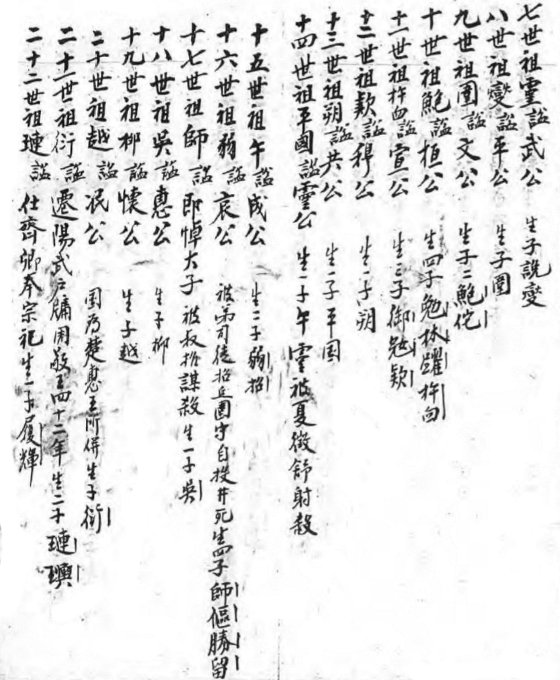 七世祖靈諡武公 生子說燮
八世祖燮諡平公 生子圉
九世祖圉諡文公 生子二鮑佗
十世祖鮑諡桓公 生四子勉林躍杵臼
十一世祖杵臼諡宣公 生三子御勉欵
十二世祖欵諡穆公 生一子朔
十三世祖朔諡共公 生一子平國
十四世祖平國諡靈公 生一子午 靈被夏徵舒射殺
十五世祖午諡成公 生二子弱招
十六世祖弱諡哀公 被弟司徒招丘圍守自投井死生四子師傴勝留
十七世祖師諡 即悼大子被叔招謀殺生一子吳
十八世祖吳諡惠公 生子柳
十九世祖柳諡懷公 生子越
二十世祖越諡泯公 國為楚惠王所併生子衍
二十一世祖衍諡 遷陽武戶牖周敬王四十二年生二子璉璵
二十二世祖璉諡 仕齊卿奉宗祀生一子履輝